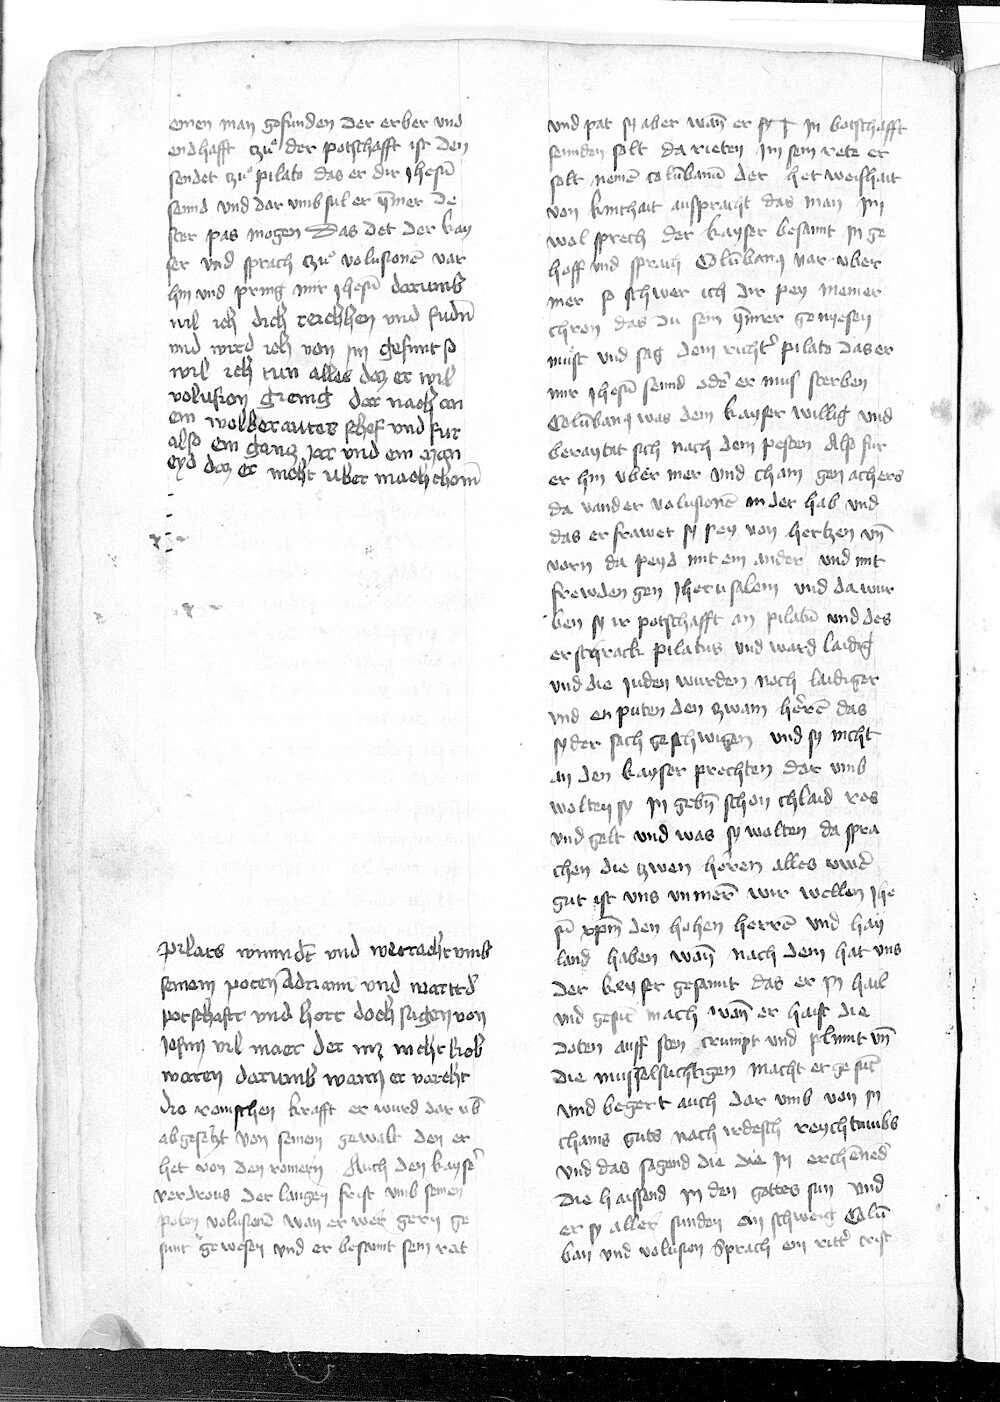 einen man gefunden der erber und
endhafft czu der potschafft ist den
sendet czu pilato das er dir Jhesū
sennd und dar umb sul er ymer de
ster pas mogen Das det der kay
ser und sprach czu volusionē var
hin und pring mir Jhesū darumb
wil ich dich reichhen und fudn̄
und wird ich von im gesunt so
wil ich tun alles daz er wil
volusion gieng dar nach an
ein wolberaites schef und fur
also ein gancz jar und ein man
eyd daz er nicht uber mocht chom̄
Pilats wundt und wetracht umb
seinem poten Adriann und wartt d
potschafft und hort doch sagen von
Jesum vil maer der im nicht liob
waren darumb wann er vorcht
die romischen krafft er wurd dar ub
abgeseczt von seinem gewalt den er
het von den romern Auch den kayser
verdrous der langen frist umb seinen
poten volusionē wan er wer gern ge
sunt gewesen und er besannt sein rat
und pat sy aber wan̄ er sy in botschafft
sennden solt da rieten im sein rete er
solt nemē columbanū der het weishait
von kinthait aufpracht das man im
wol sprech der kayser besannt in ge
hoff und sprach Columbanus var uber
mer so schwer ich dir pey meiner
chron das du sein ymer geniessen
must und sag dem richter pilato das er
mir Jhesū sennd oder er mus sterben
Columbanus was dem kayser willig und
beraytat sich nach dem pesten Also fur
er hin uber mer und cham gen achers
da vand er volusionē in der hab und
das erfrawet sy sey von hertzen un̄
vorn da peyd mit ein ander und mit
frewden gen Jherusalem und da wur
ben sy ir potschafft an pilatū und des
erschrack pilatus und ward laidig
und die juden wurden noch laidiger
und enputen den zwain herrē das
sy der sach geschwigen und sy nicht
an den kayser prechten dar umb
wolten sy in gebn̄ schon chlaid ros
und gelt und was sy wolten da spra
chen die zwen herren alles ewer
gut ist uns unmer wir wellen Jhe
sū xpm̄ den hohen herrē und hay
land haben wan̄ nach dem hat uns
der keyser gesannt das er in hail
und gesunt mach wan̄ er haist die
doten auff sten crumpt und plinnt un̄
die musselsuchtigen macht er gesunt
und begert auch dar umb von in
chains guts nach irdesch reychtumbs
und das sagend die die in erchenned
Die haissend in den gottes sun und
er sy aller sunden ein schweig Colum
ban und volusion Sprach ein ritter crist